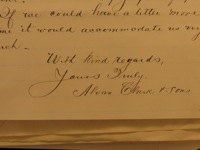 If we could have a little more
it would accommodate us
With kind regards,
Yours Truly
Alvan Clark & Sons